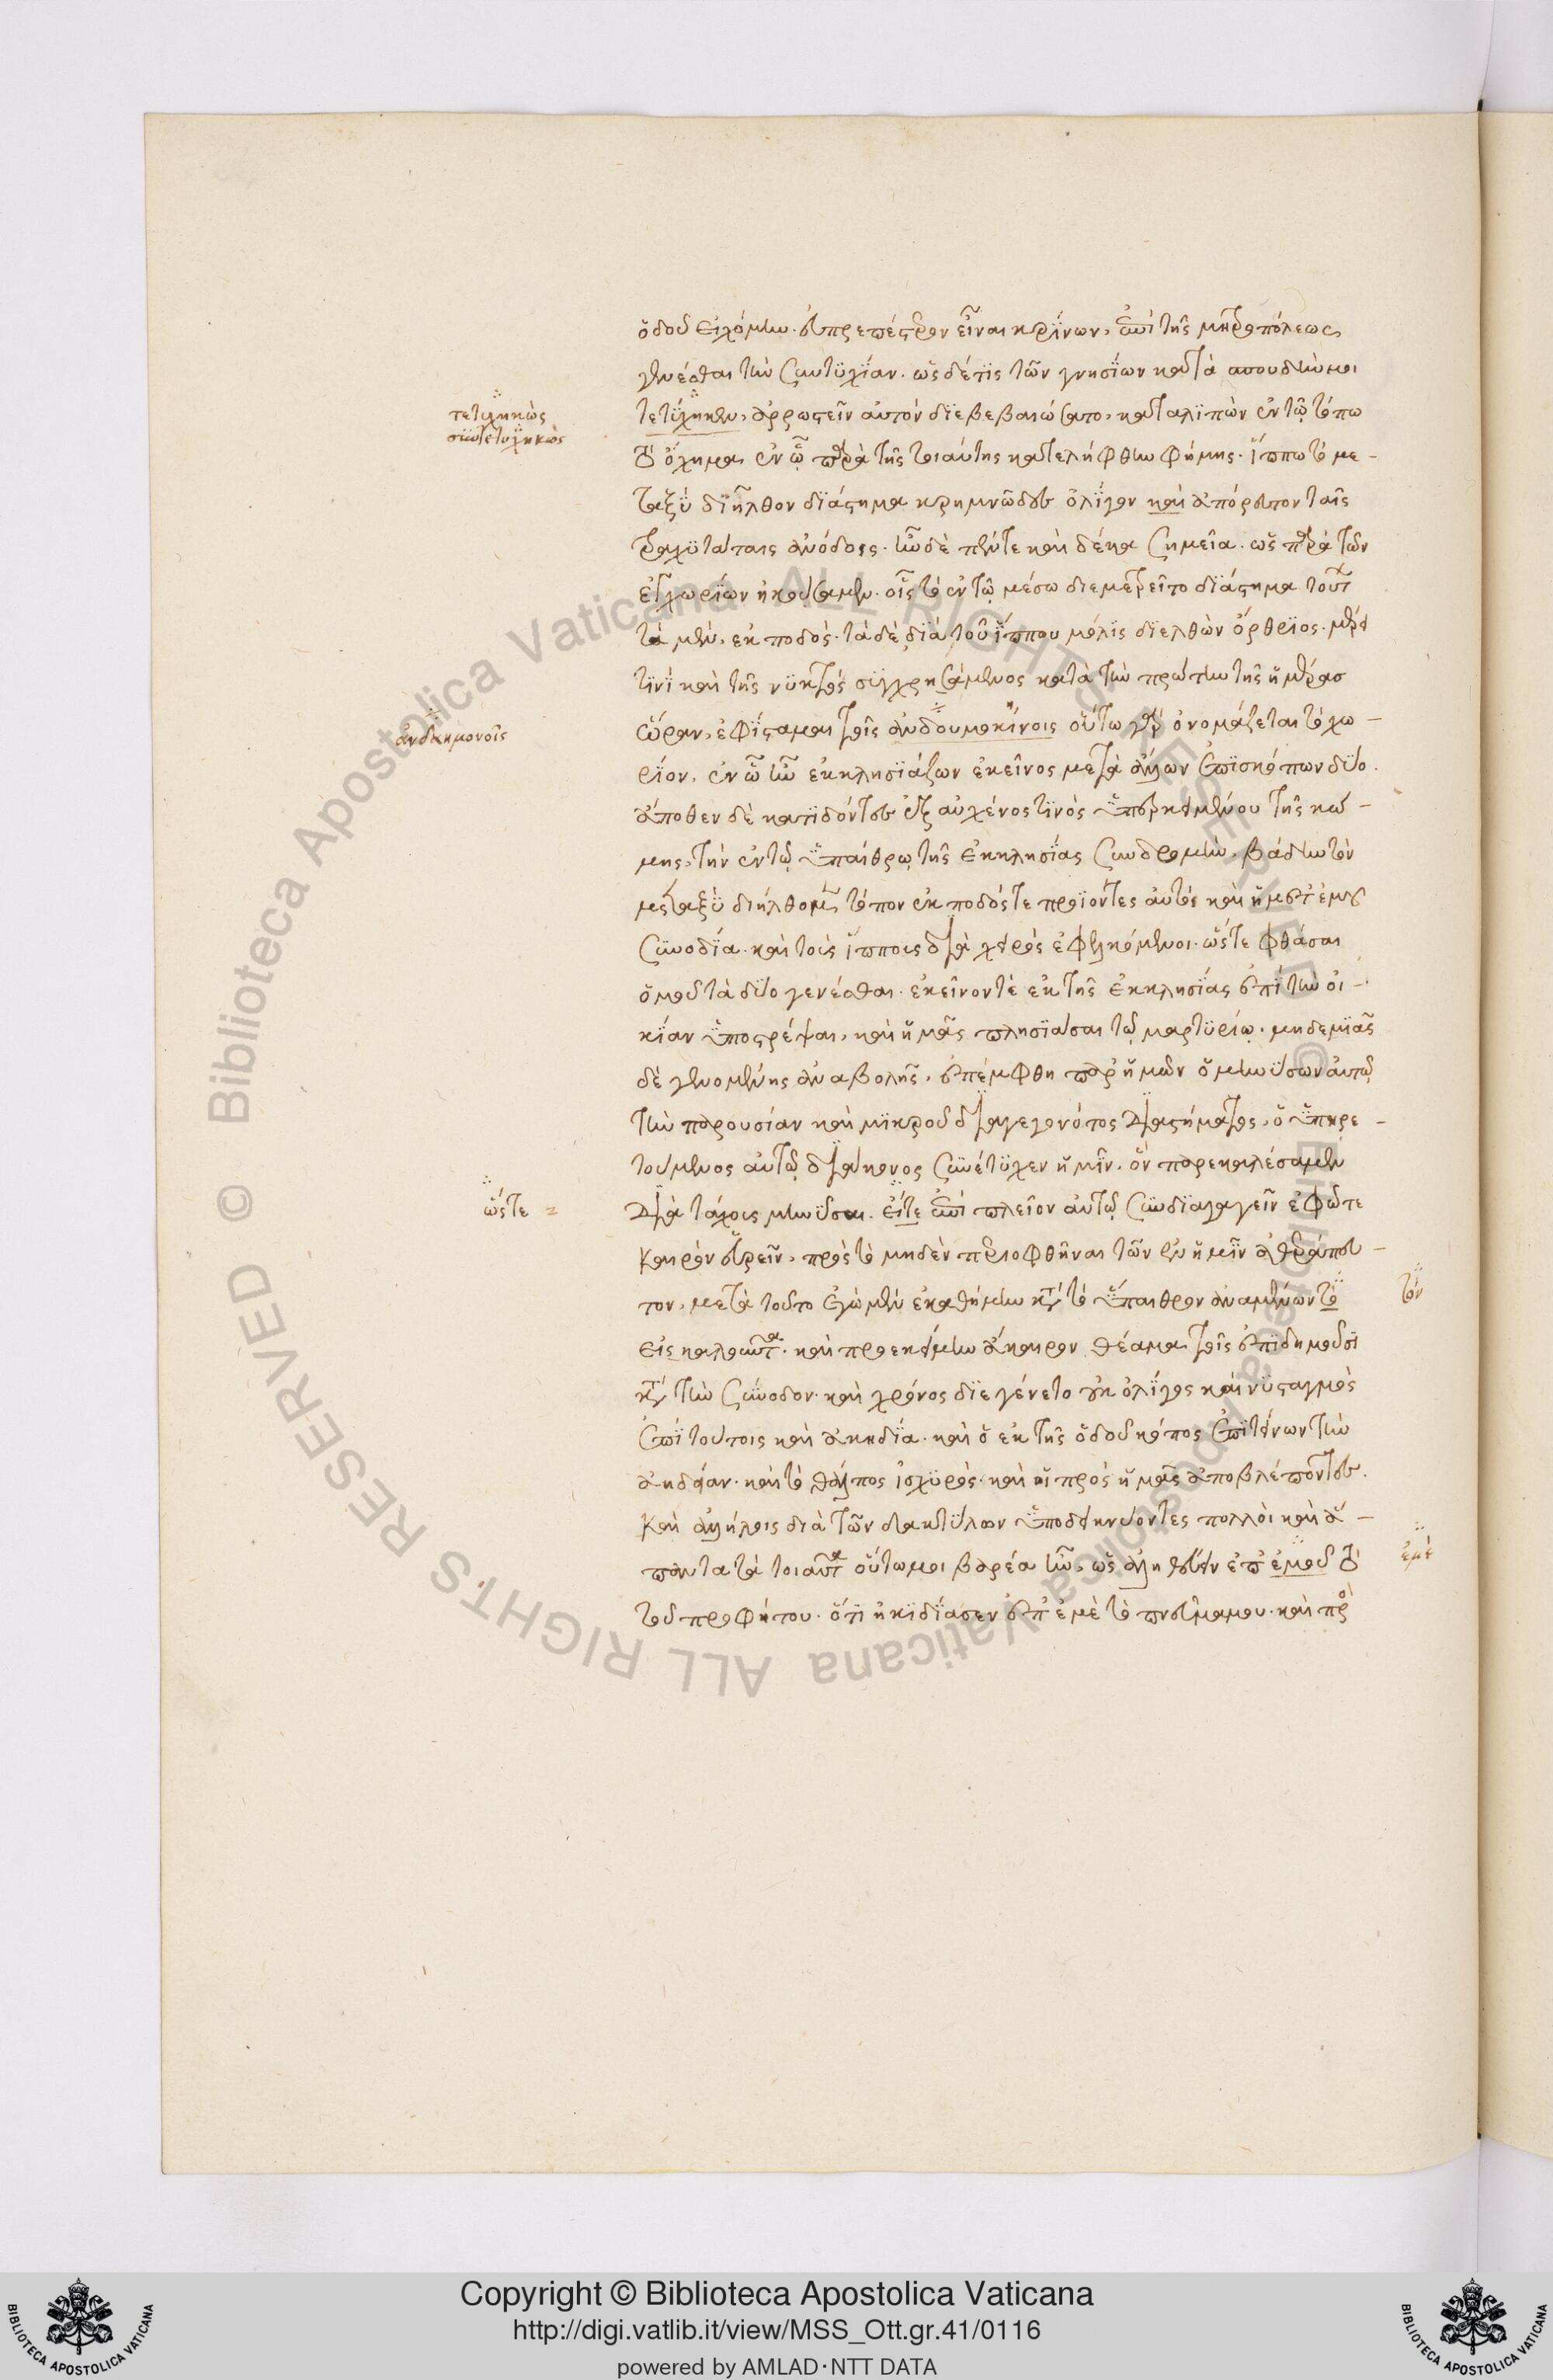 ὁδοῦ εἰχόμην. εὐπρεπέστερον εἶναι κρίνων, ἐπὶ τῆς μητροπόλεως
γενέσθαι τὴν συντυχίαν. ὡς δέ τις τῶν γνησίων κατὰ σπουδήν μοι
τετύχηκεν, ἀρρωστεῖν αὐτόν διεβεβαιώσατο, καταλιπὼν ἐν τῷ τόπω
τὸ ὄχημα, ἐν ᾧ παρὰ τῆς τοιαύτης κατελήφθην φήμης. ἵππω τὸ με-
ταξὺ διῆλθον διάστημα κρημνῶδες ὀλίγον καὶ ἀπόρευτον ταῖς
τραχυτάταις ἀνόδοις. ἦν δὲ πέντε καὶ δέκα σημεῖα. ὡς παρὰ τῶν
ἐγχωρίων ἠκούσαμεν. οἷς τὸ ἐν τῷ μέσω διεμετρεῖτο διάστημα τούτων
τὰ μὲν, ἐκ ποδὸς. τὰ δὲ διὰ τοῦ ἵππου μόλις διελθὼν ὄρθριος. μέρει
τινὶ καὶ τῆς νυκτός συγχρησάμενος κατὰ τὴν πρώτην τῆς ἡμέρας
ὥραν, ἐφίσταμαι τοῖς ἀνδουμοκίνοις οὕτω γὰρ ὀνομάζεται τὸ χω-
ρίον, ἐν ᾧ ἦν ἐκκλησιάζων ἐκεῖνος μετὰ ἄλλων ἐπισκόπων δύο.
ἄποθεν δὲ κατιδόντες ἐξ αὐχένος τινὸς ὑπερκειμένου τῆς κώ-
μης, τὴν ἐν τῷ ὑπαίθρῳ τῆς ἐκκλησίας συνδρομὴν, βάδην τὸν
μεταξὺ διήλθομεν τόπον ἐκ ποδός τε προϊόντες αὐτός καὶ ἡ μετ' ἐμοῦ
συνοδία. καὶ τοὺς ἵππους διὰ χειρὸς ἐφελκόμενοι. ὥστε φθάσαι
ὁμοῦ τὰ δύο γενέσθαι. ἐκεῖνον τὲ ἐκ τῆς ἐκκλησίας ἐπὶ τὴν οἰ-
κίαν ὑποστρέψαι, καὶ ἡμᾶς πλησιάσαι τῷ μαρτυρίῳ. μηδεμιᾶς
δὲ γενομένης ἀναβολῆς, ἐπέμφθη παρ' ἡμῶν ὁ μηνύσων αὐτῷ
τὴν παρουσίαν καὶ μικροῦ διαγεγονότος διαστήματος, ὁ ὑπηρε-
τούμενος αὐτῷ διάκονος συνέτυχεν ἡμῖν. ὃν παρεκαλέσαμεν
διὰ τάχους μηνῦσαι. εἴτε ἐπὶ πλεῖον αὐτῷ συνδιαγαγεῖν ἐφ' ᾧτε
καιρὸν εὑρεῖν, πρὸς τὸ μηδὲν περιοφθῆναι τῶν ἐν ἡμῖν ἀθεράπευ-
τον, μετὰ τοῦτο ἐγὼ μὲν ἐκαθήμην κατὰ τὸ ὕπαιθρον ἀναμένων τὸ
εἰς καλοῦντα. καὶ προεκείμην ἄκαιρον θέαμα τοῖς ἐπιδημοῦσι
κατὰ τὴν σύνοδον. καὶ χρόνος διεγένετο οὐκ ὀλίγος καὶ νυσταγμὸς
ἐπὶ τούτοις καὶ ἀκηδία. καὶ ὁ ἐκ τῆς ὁδοῦ κόπος ἐπιτείνων τὴν
ἀηδίαν. καὶ τὸ θάλπος ἰσχυρὸς. καὶ οἱ πρὸς ἡμᾶς ἀποβλέποντες.
καὶ ἀλλήλοις διὰ τῶν δακτύλων ὑποδεικνύοντες πολλοὶ καὶ ἅ-
παντα τὰ τοιαῦτα οὕτω μοι βαρέα ἦν, ὡς ἀληθεύειν ἐπ' ἐμοῦ τὸ
τοῦ προφήτου. ὅτι ἠκιδίασεν ἐπ' ἐμὲ τὸ πνεῦμα μου. καὶ πρὸ
τετυχηκὼς
συντετυχηκὼς
ἀνδαημονοῖς
ὥστε
τόν
ἐμὲ
Copyright © Biblioteca Apostolica Vaticana
http://digi.vatlib.it/view/MSS_Ott.gr.41/0116
powered by AMLAD·NTT DATA
BIBLIOTECA APOSTOLICA VATICANA
BIBLIOTECA APOSTOLICA VATICANA
© Biblioteca Apostolica Vaticana ALL RIGHTS RESERVED © Biblioteca Apostolica Vaticana ALL RIGHTS RESERVED